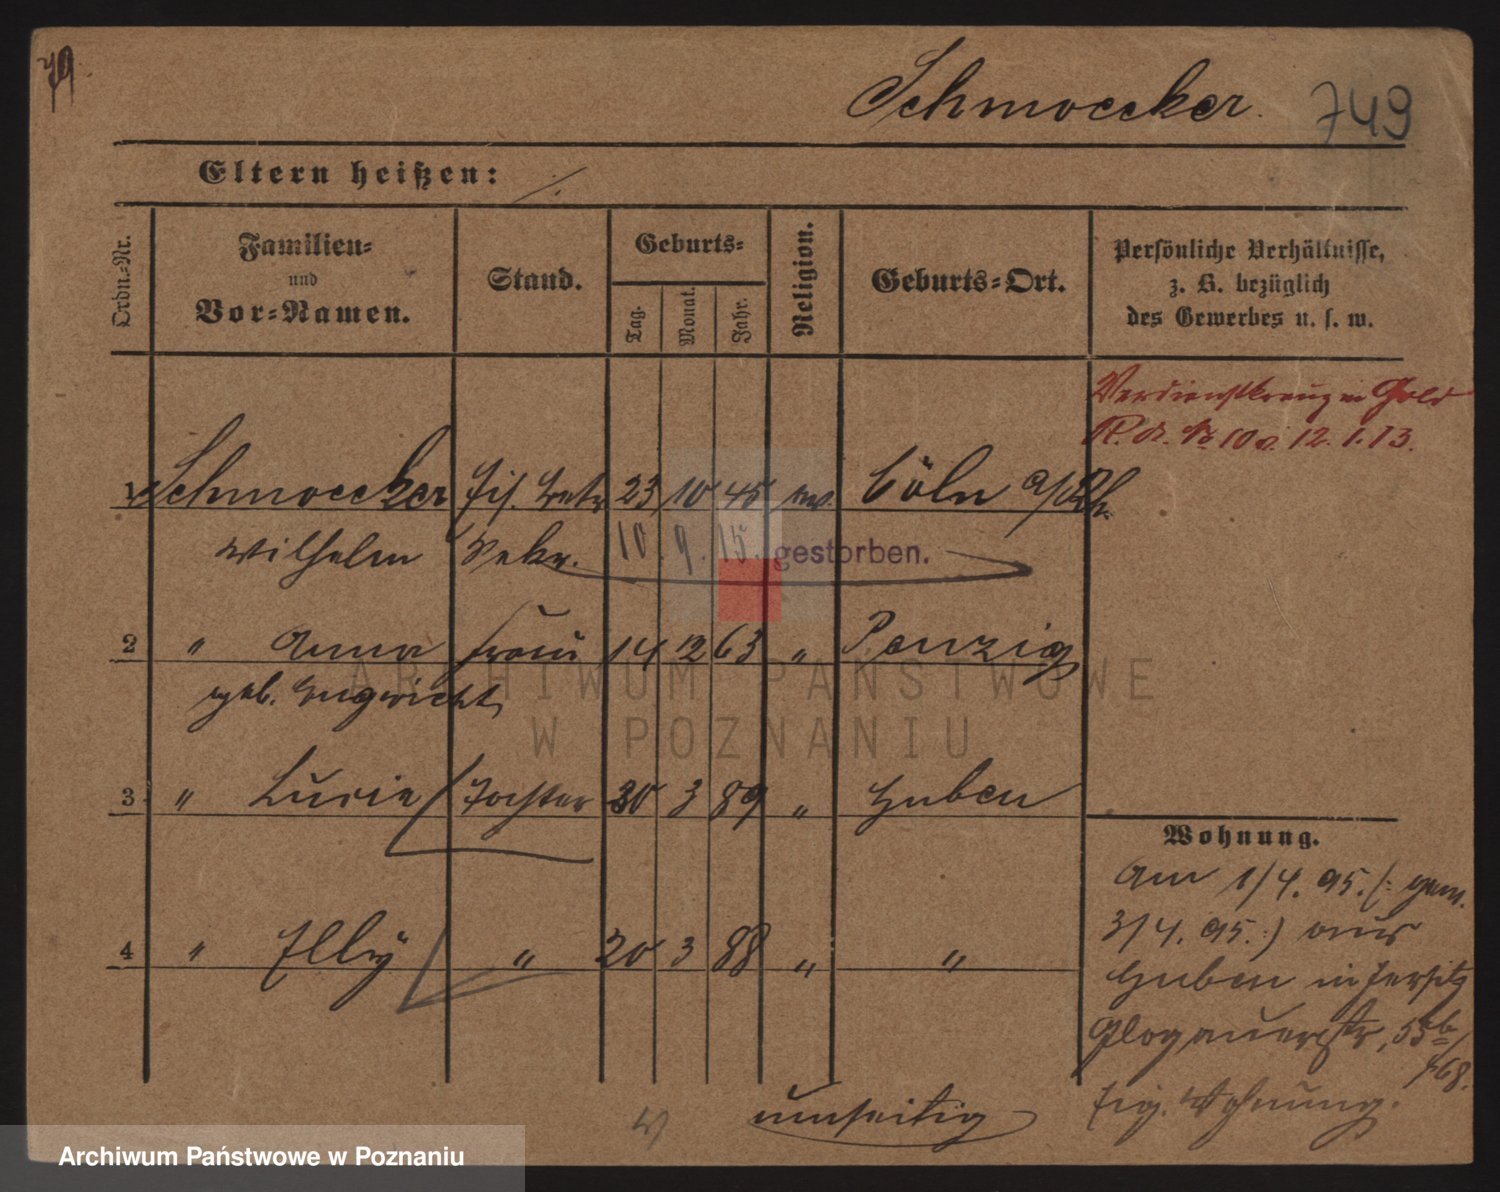 79.
Schmoecker. 749
Eltern heißen: ./.
Ordn.-Nr.
Familien-
und
Vor-Namen.
Stand.
Geburts-
Tag.
Monat.
Jahr.
Religion.
Geburts-Ort.
Persönliche Verhältnisse,
z. B. bezüglich
des Gewerbes u. s. w.
Verdienstkreuz in Gold
12.1.13.
1 Schmoecker Eis. Betr. 23 10 45 ev. Cöln a/Rh.
Wilhelm Sekr. 10.9.15. gestorben.
2 " Anna Frau 14 12 63 " Penzig
geb. Engwicht
3 " Lucie Tochter 30 3 89 " Guben
4 " Elly " 20 3 88 " "
Wohnung.
Am 1/4. 95. (: gem.
3/4. 95. :) aus
Guben in Jersitz
Glogauerstr. 53b/
/68.
Eig. Wohnung.
umseitig
ARCHIWUM PAŃSTWOWE
W POZNANIU
Archiwum Państwowe w Poznaniu